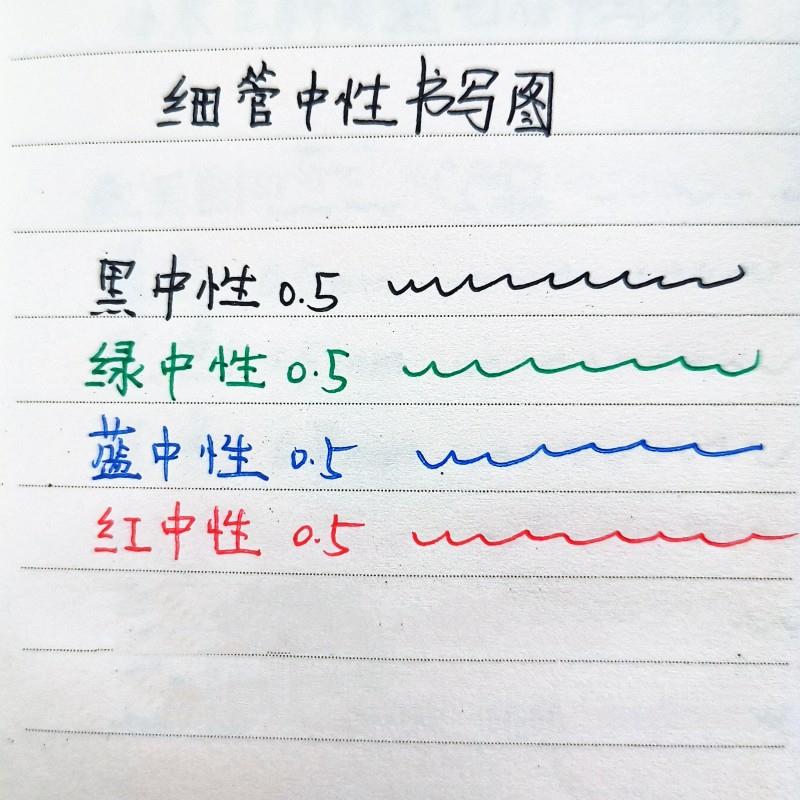 细管中性书写图
黑中性 0.5
绿中性 0.5
蓝中性 0.5
红中性 0.5